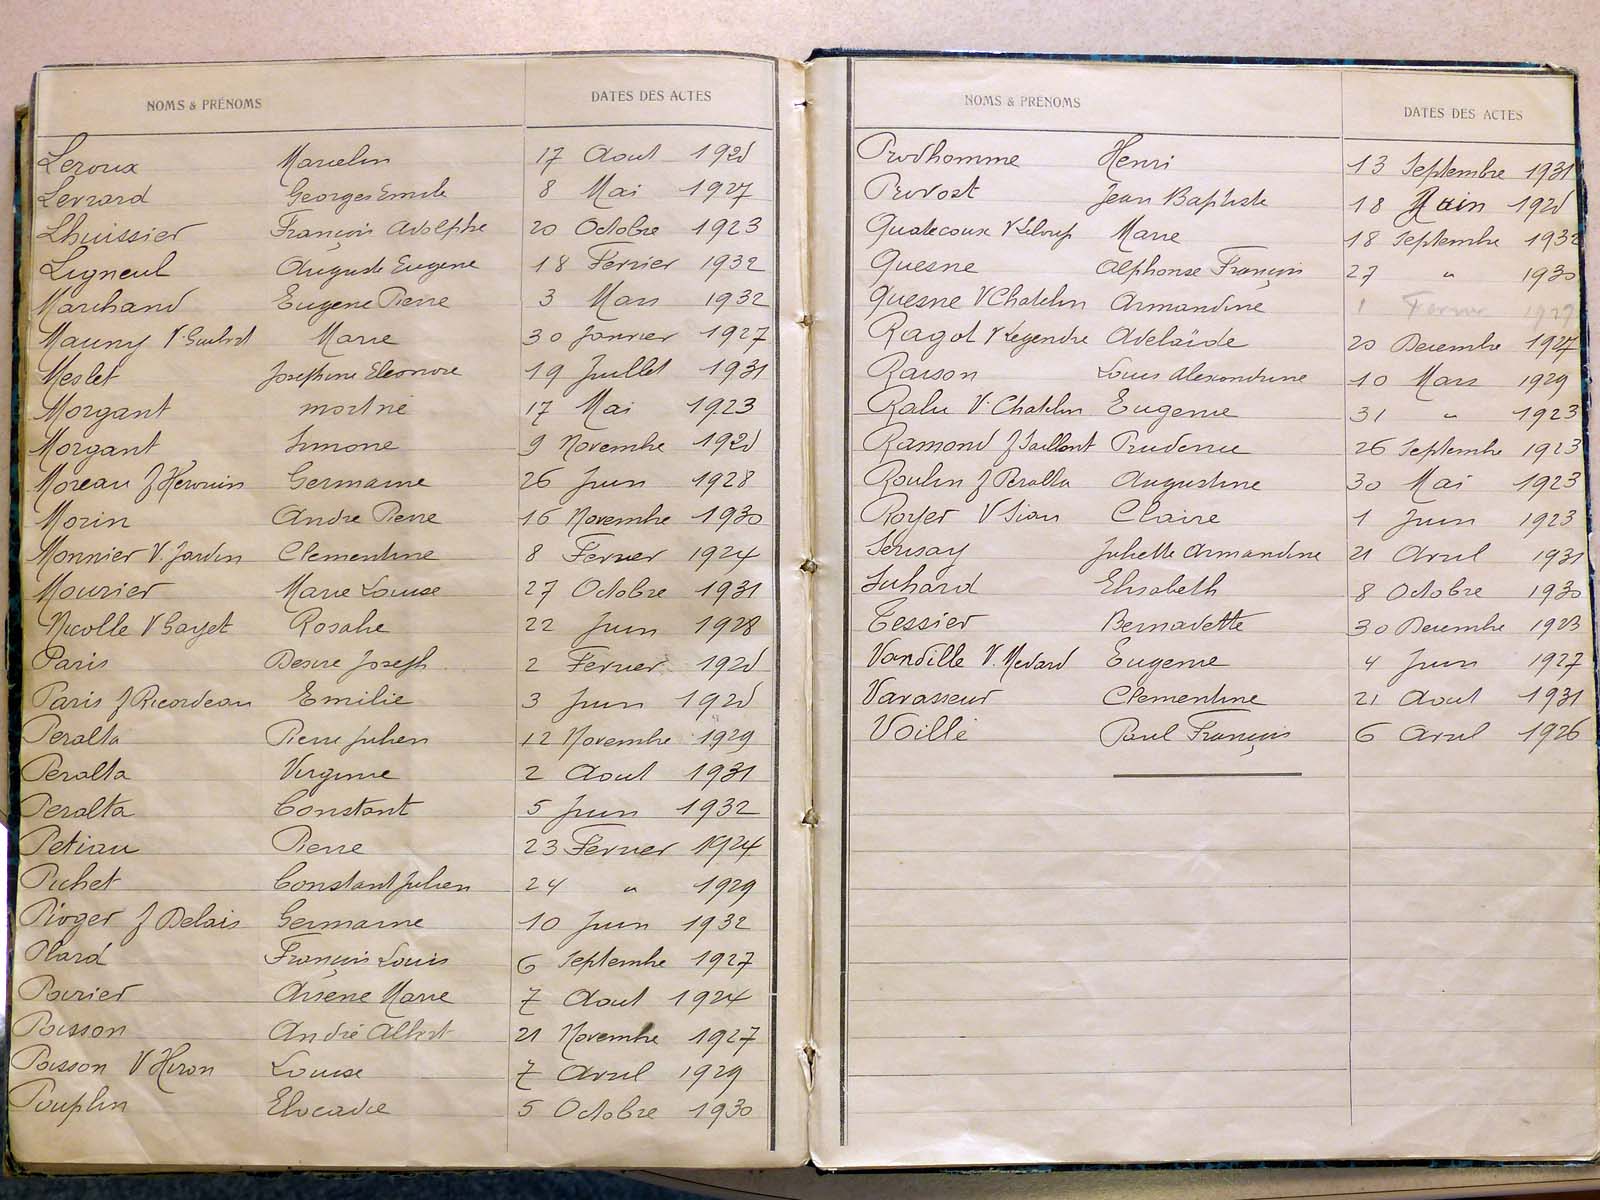 NOMS & PRÉNOMS DATES DES ACTES
Leroux Marcelin 17 Aout 1925
Levrard Georges Emile 8 Mai 1927
Lhuissier François Adolphe 20 Octobre 1923
Ligneul Auguste Eugene 18 Fevrier 1932
Marchand Eugene Pierre 3 Mars 1932
Mauny V. Guibert Marie 30 Janvier 1927
Meslet Josephine Eleonore 19 Juillet 1931
Morgant mort né 17 Mai 1923
Morgant Simone 9 Novembre 1925
Moreau f Hervouin Germaine 26 Juin 1928
Morin Andre Pierre 16 Novembre 1930
Monnier V. Jardin Clementine 8 Fevrier 1924
Mourier Marie Louise 27 Octobre 1931
Nicolle V Gayet Rosalie 22 Juin 1928
Paris Desire Joseph 2 Fevrier 1925
Paris f Ricordeau Emilie 3 Juin 1925
Peralta Pierre Julien 12 Novembre 1929
Peralta Virginie 2 Aout 1931
Peralta Constant 5 Juin 1932
Petiau Pierre 23 Fevrier 1924
Pichet Constant Julien 24 " 1929
Pioger f Delais Germaine 10 Juin 1932
Plard François Louis 6 Septembre 1927
Poirier Arsene Marie 7 Aout 1924
Poisson André Albert 21 Novembre 1927
Poisson V Huron Louise 7 Avril 1929
Pouplin Eleocadie 5 Octobre 1930
NOMS & PRÉNOMS DATES DES ACTES
Prodhomme Henri 13 Septembre 1931
Provost Jean Baptiste 18 Juin 1925
Quatecoux V Leloup Marie 18 Septembre 1932
Quesne Alphonse François 27 " 1930
Quesne V Chatelin Armandine 1 Fevrier 1929
Ragot V Legendre Adelaïde 20 Decembre 1927
Raison Louis Alexandrine 10 Mars 1929
Ralu V. Chatelin Eugenie 31 " 1923
Ramond f Saillant Prudence 26 Septembre 1923
Roulin f Peralta Augustine 30 Mai 1923
Royer V Siau Claire 1 Juin 1923
Sensay Juliette Armandine 21 Avril 1931
Suhard Elisabeth 8 Octobre 1930
Tessier Bernadette 30 Decembre 1923
Vandille V. Medard Eugenie 4 Juin 1927
Vavasseur Clementine 21 Aout 1931
Voille Paul François 6 Avril 1926